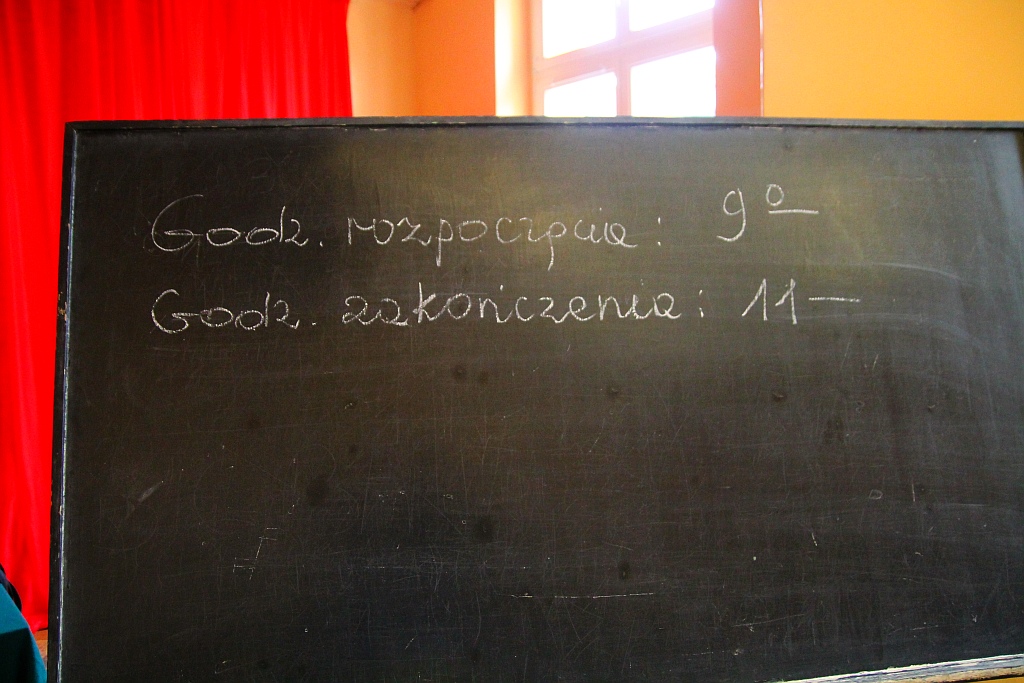 Godz. rozpoczęcia: 9º
Godz. zakończenia: 11–